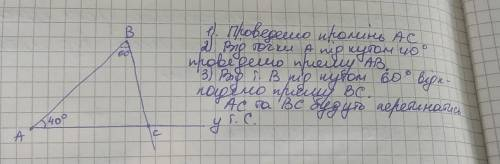 B
60°
A
40°
C
1). Проведемо промінь AC
2) Від точки A під кутом 40°
проведемо пряму AB.
3) Від т. B під кутом 60° відк-
ладемо пряму BC.
AC та BC будуть перетинатись
у т. C.